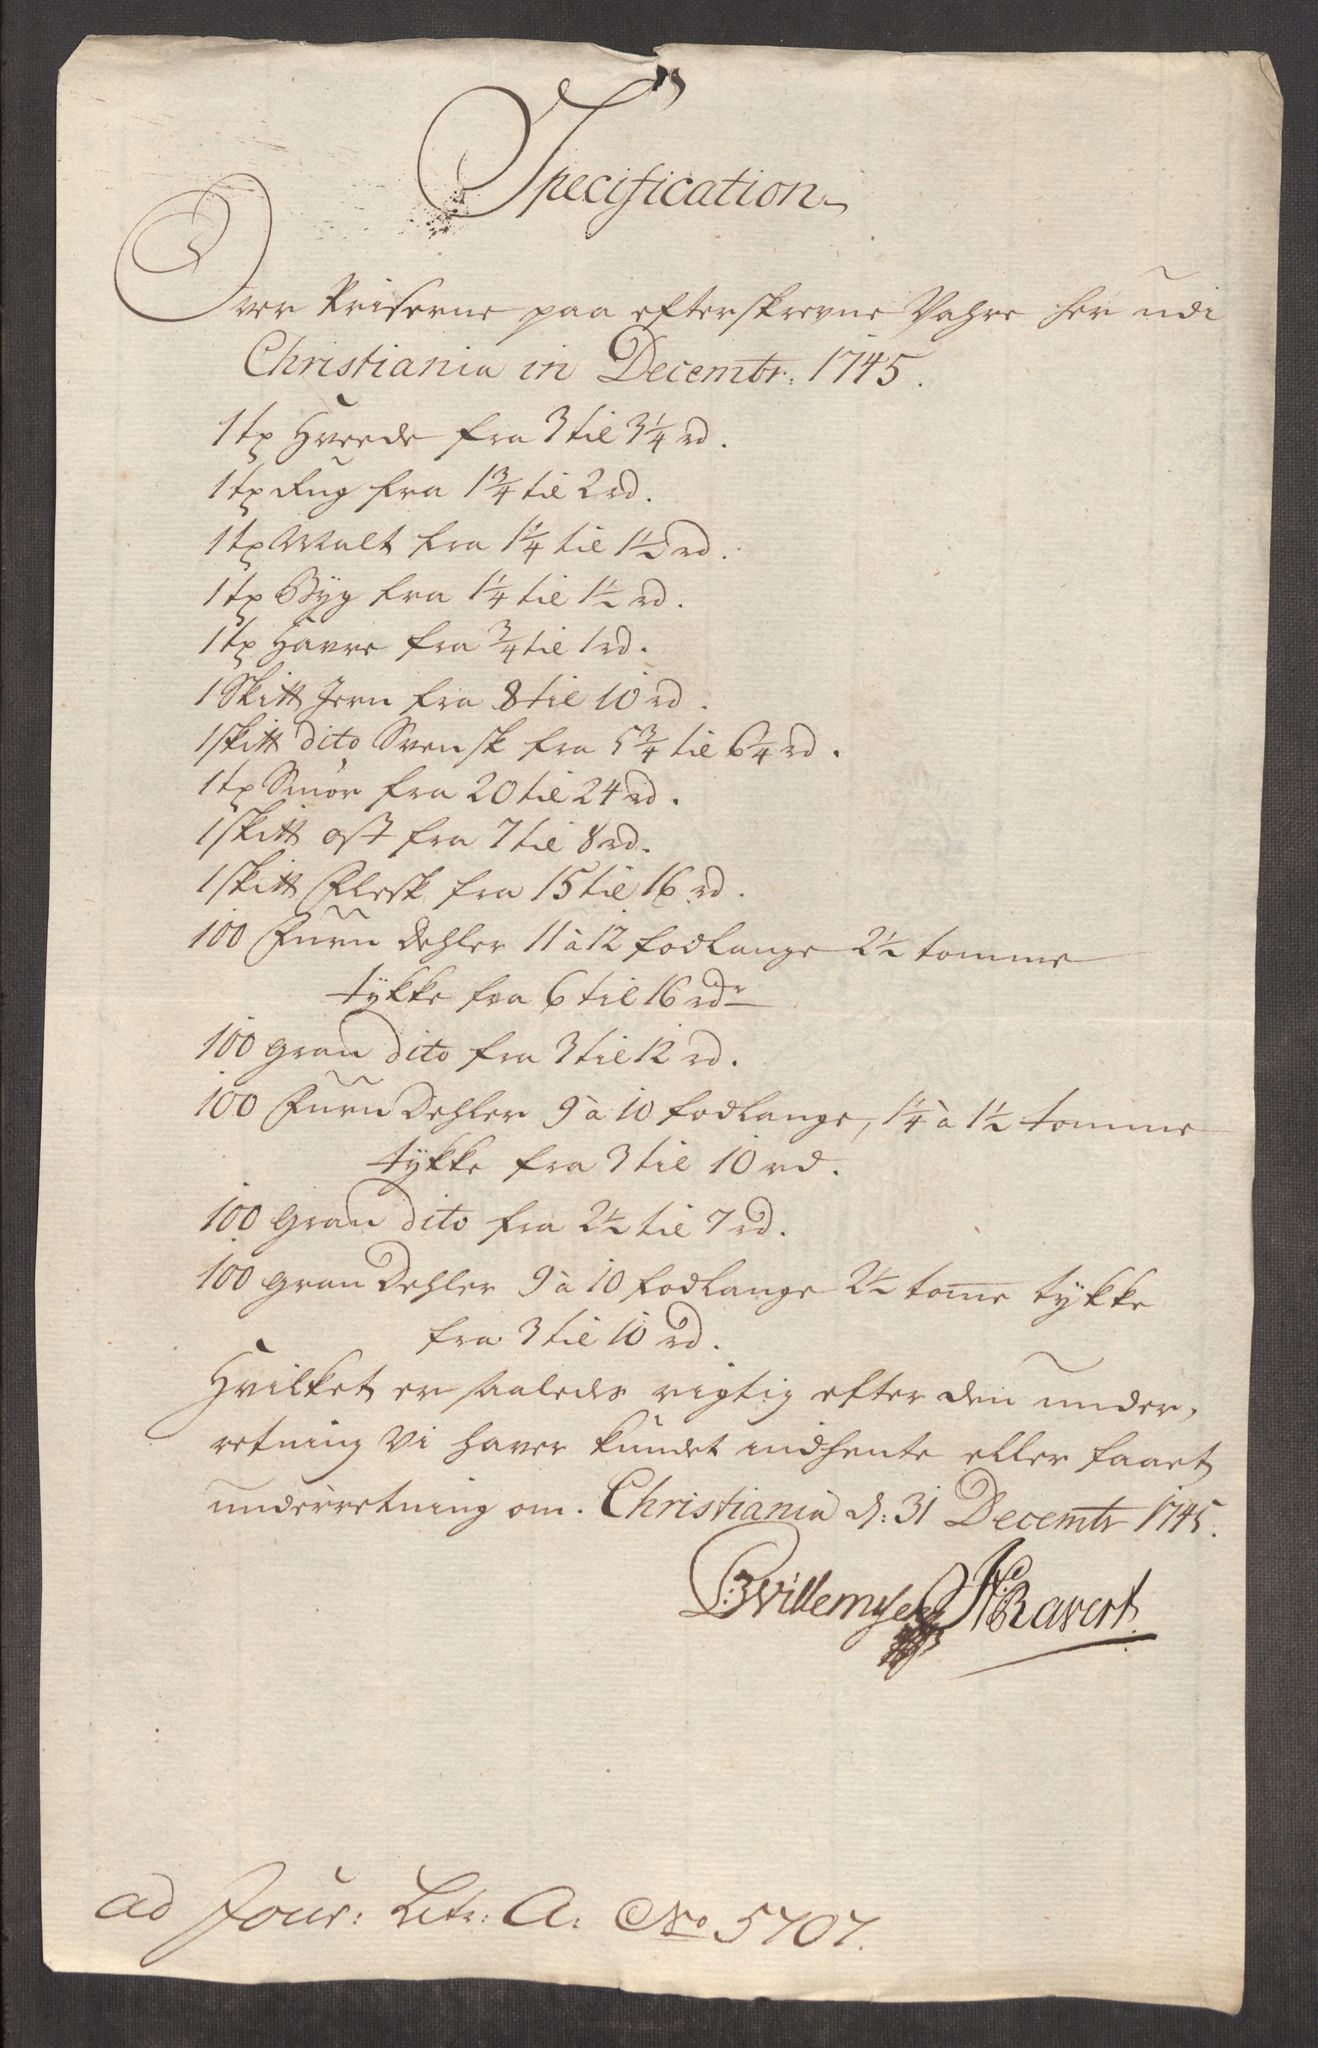 Specification
Over Priserne paa efterskrevne Vahre her udi
Christiania in Decembr: 1745.
1 tp Hveede fra 3 til 3 1/4 rd.
1 tp Rug fra 1 3/4 til 2 rd.
1 tp Malt fra 1 1/4 til 1 1/2 rd.
1 tp Byg fra 1 1/4 til 1 1/2 rd.
1 tp Havre fra 3/4 til 1 rd.
1 Skitt Jern fra 8 til 10 rd.
1 skitt dito Svensk fra 5 3/4 til 6 1/4 rd.
1 tp Smør fra 20 til 24 rd.
1 skitt ost fra 7 til 8 rd.
1 skitt Flesk fra 15 til 16 rd.
100 Furu Dehler 11 à 12 fodlange 2 1/2 tomme
tykke fra 6 til 16 rdr
100 gran dito fra 3 til 12 rd.
100 Furu Dehler 9 à 10 fodlange, 1 1/4 à 1 1/2 tomme
tykke fra 3 til 10 rd.
100 gran dito fra 2 1/2 til 7 rd.
100 gran Dehler 9 à 10 fodlange 2 1/2 tome tykke
fra 3 til 10 rd.
Hvilket er saaledes rigtig efter den under,
retning vi haver kundet indhente eller faaet
underretning om. Christiania d: 31 Decembr 1745.
Willemsen Ravert
ad Jour: Litr: A: No 5707.